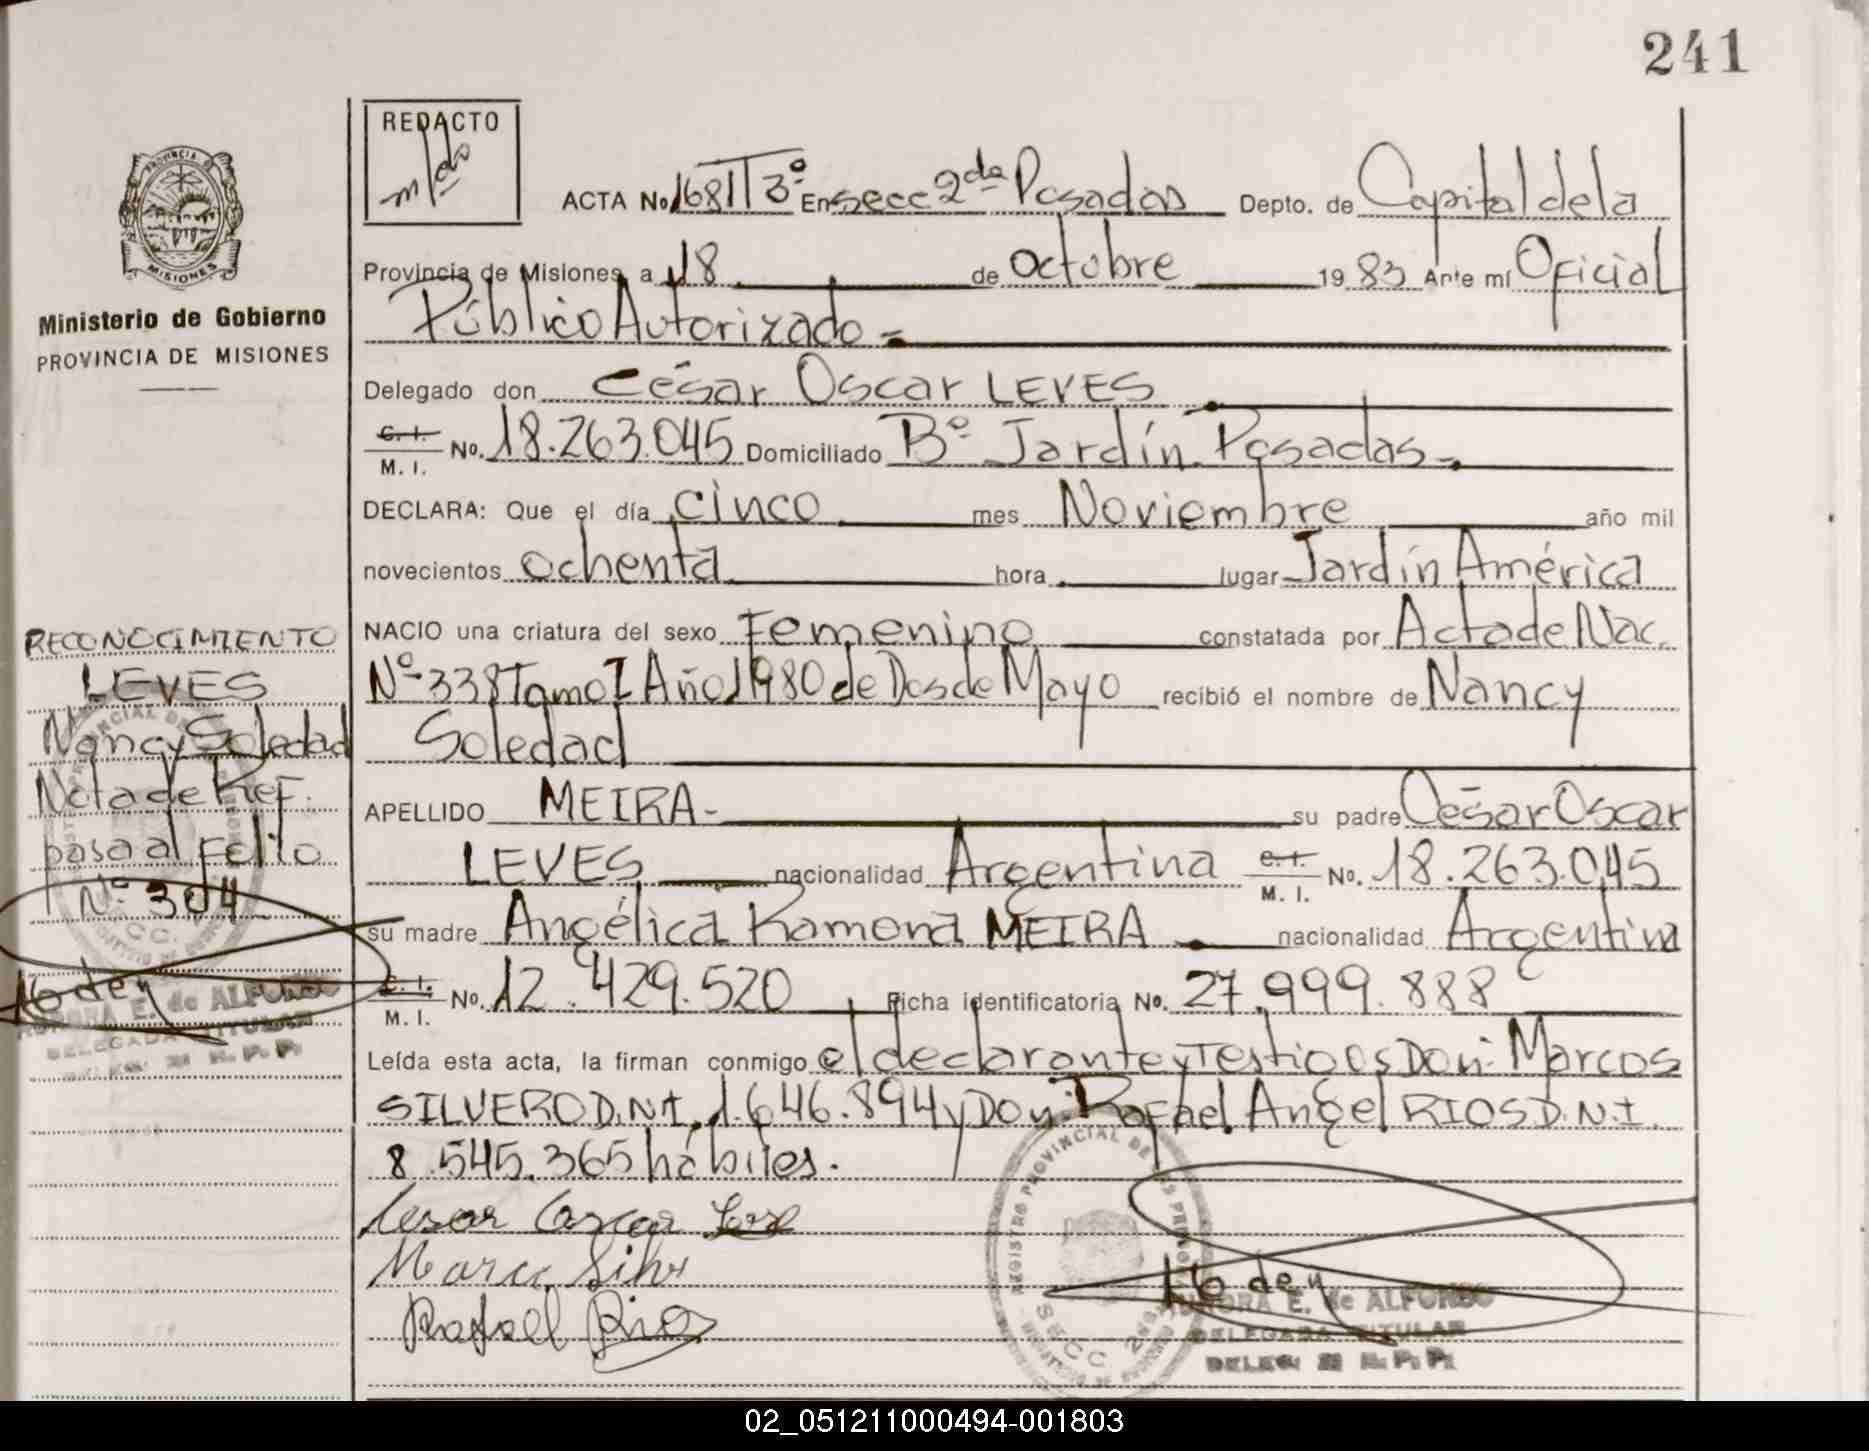 241
REDACTO
ACTA No 1681 T 3º En secc 2da Posadas Depto. de Capital de la
Provincia de Misiones a 18 de octubre 1983 Ante mí Oficial
Público Autorizado=
Delegado don César Oscar LEVES
C. I. M. I. No. 18.263.045 Domiciliado Bº Jardín Posadas-
DECLARA: Que el día cinco mes Noviembre año mil
novecientos ochenta hora lugar Jardín América
NACIO una criatura del sexo Femenino constatada por Acta de Nac.
Nº 338 Tomo I Año 1980 de Dos de Mayo recibió el nombre de Nancy
Soledad
APELLIDO MEIRA- su padre César Oscar
LEVES nacionalidad Argentina C. I. M. I. No. 18.263.045
su madre Angélica Ramona MEIRA nacionalidad Argentina
C. I. M. I. No. 12.429.520 Ficha identificatoria No. 27.999.888
Leída esta acta, la firman conmigo el declarante y Testigos Don: Marcos
SILVERO D.N.I. 1.646.894 y Don: Rafael Angel RIOS D.N.I.
8.545.365 hábiles.
Cesar Oscar
Rafael Rios
PROVINCIA DE MISIONES
Ministerio de Gobierno
PROVINCIA DE MISIONES
RECONOCIMIENTO
LEVES
Nancy Soledad
Nota de Ref.
pasa al Folio
Nº 304
E. de ALFONSO
DELEGADA TITULAR
REGISTRO PROVINCIAL DE LAS PERSONAS
SECC. 2da
E. de ALFONSO
DELEGADA TITULAR
02_051211000494-001803